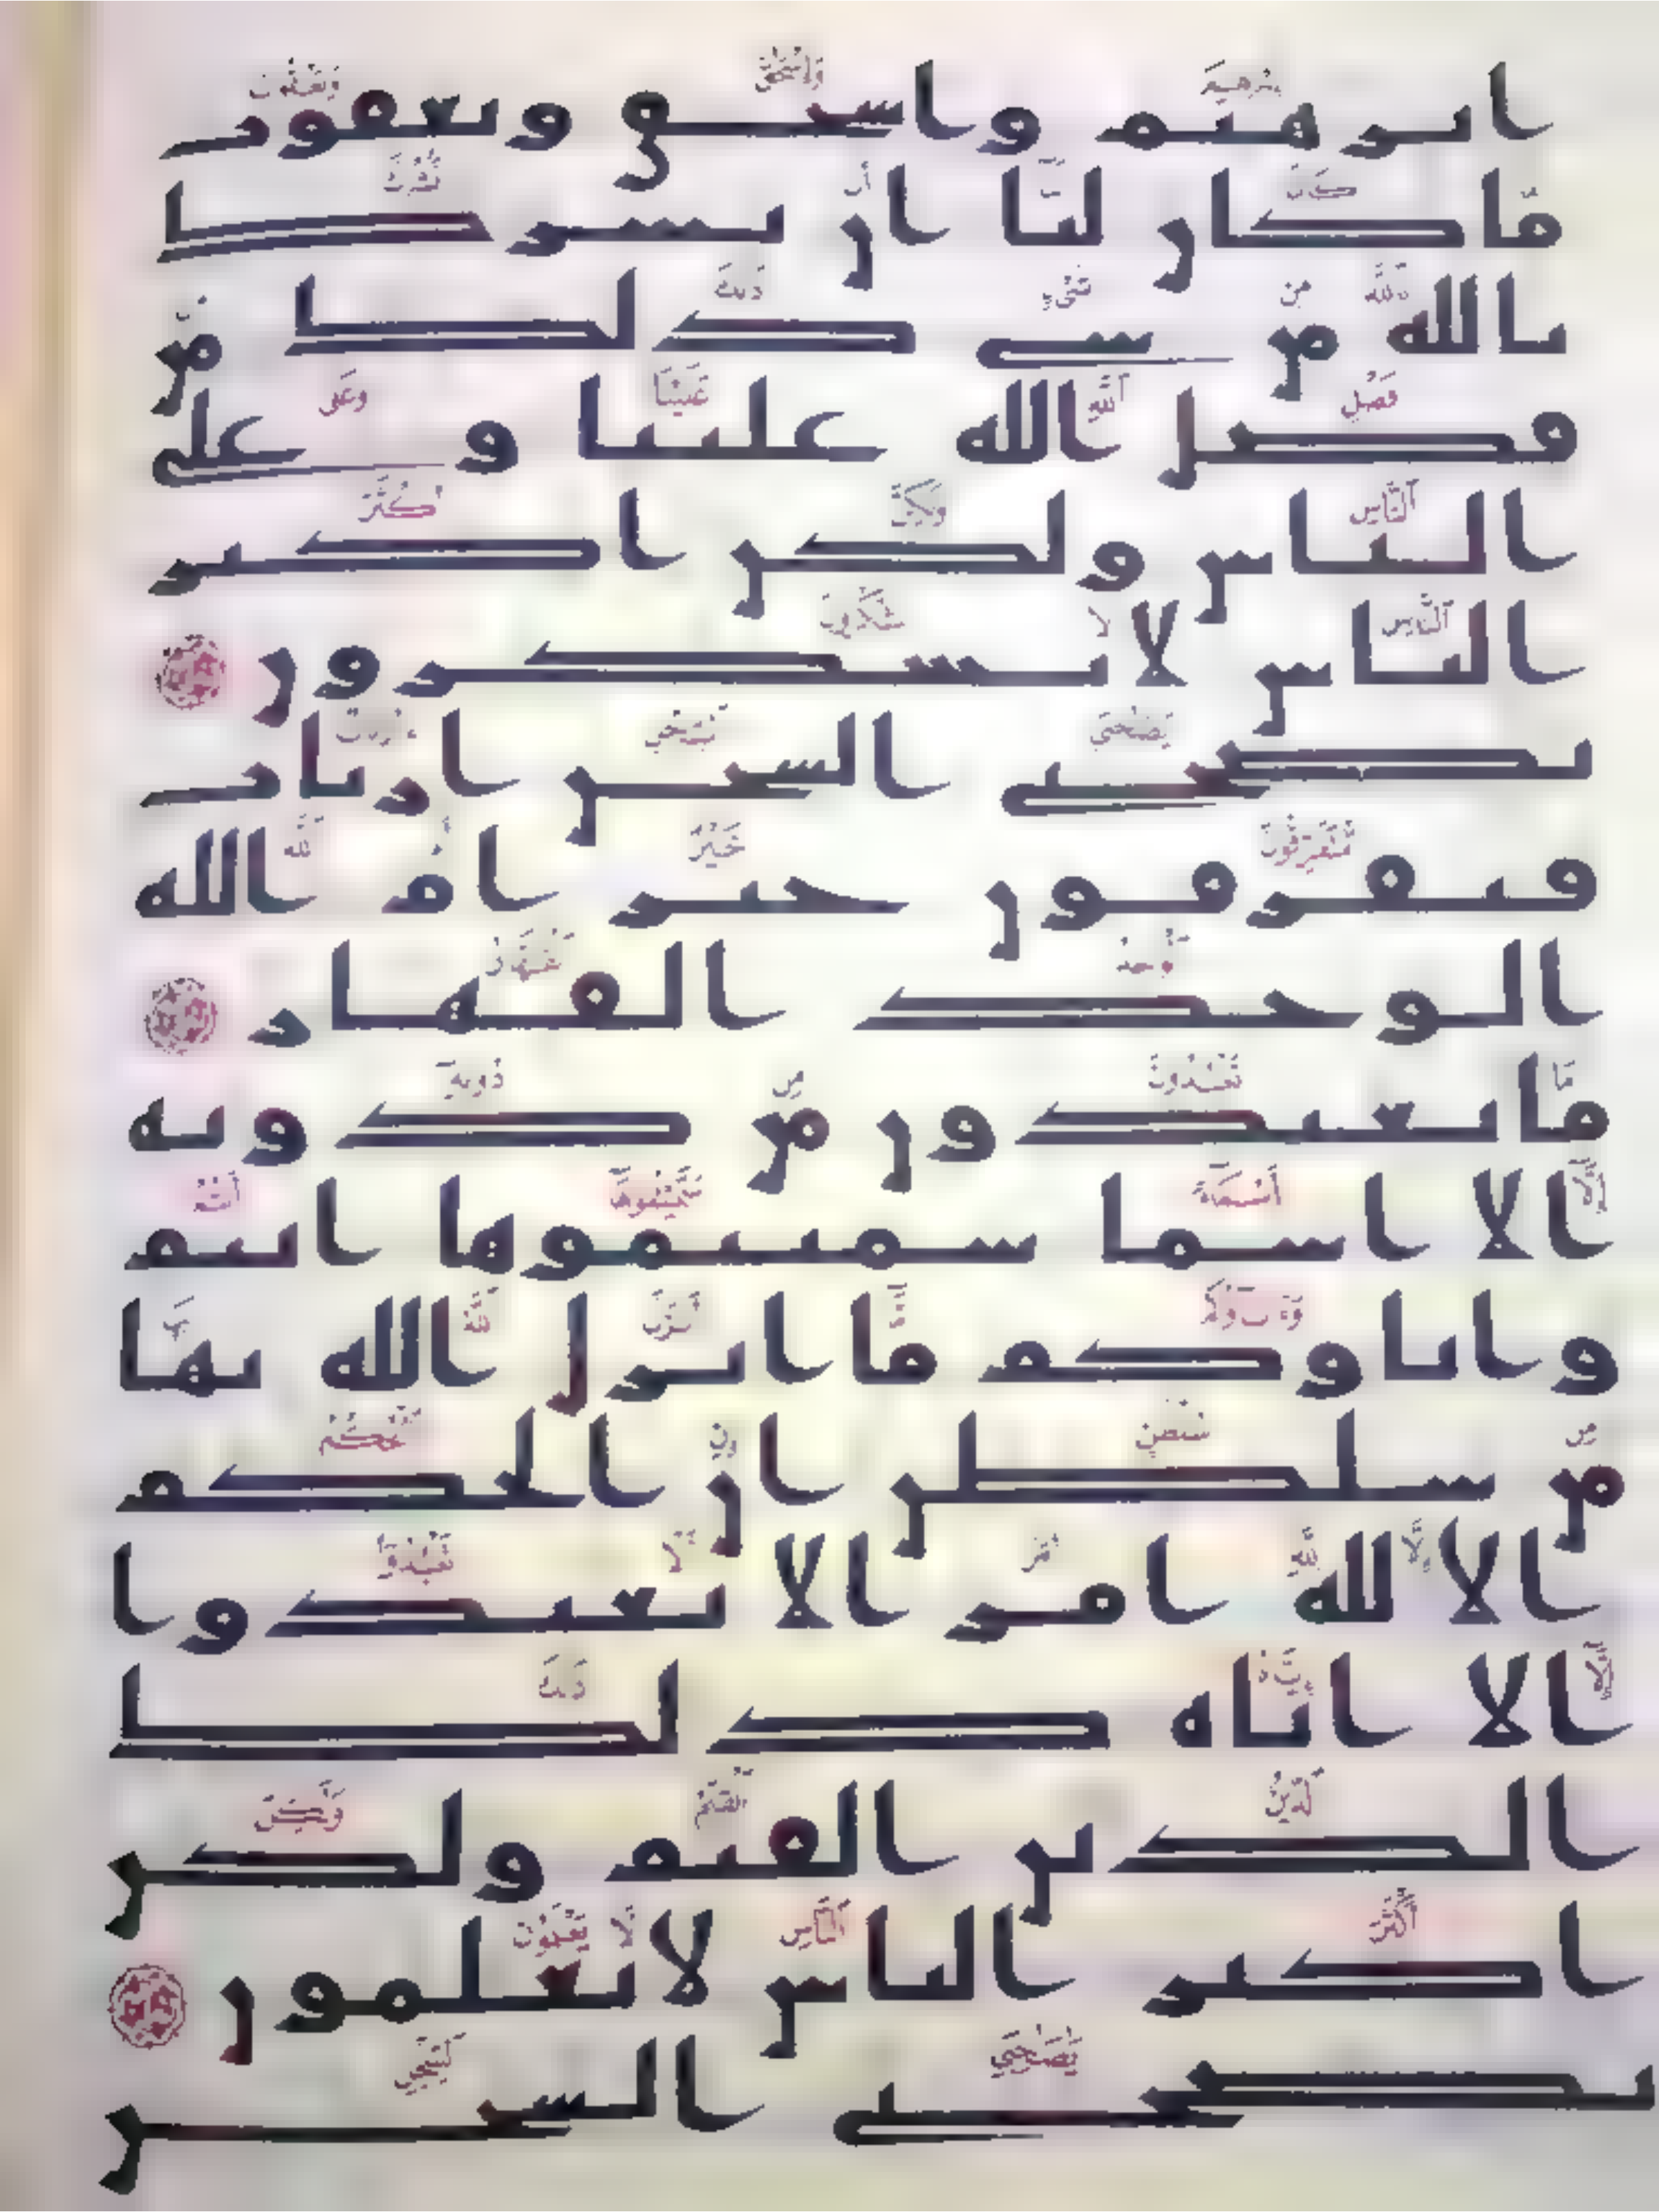 ابرهيم واسحق ويعقوب
ما كان لنا ان نشرك
بالله من شى ذلك من
فضل الله علينا و على
الناس ولكن اكثر
الناس لا يشكرون
يصحبى السجن ارباب
متفرقون خير ام الله
الوحد القهار
ما تعبدون من دونه
الا اسما سميتموها انتم
واباوكم ما انزل الله بها
من سلطن ان الحكم
الا لله امر الا تعبدوا
الا اياه ذلك
الدين القيم ولكن
اكثر الناس لا يعلمون
يصحبى السجن